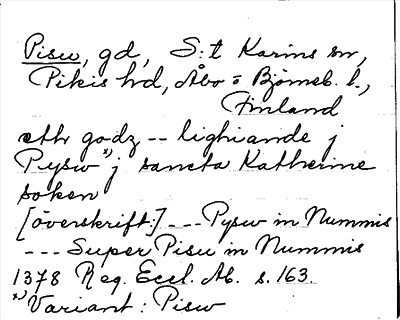 Pisu, gd, S:t Karins sn,
Pikis hd, Åbo o Björneb. l.,
Finland
eth godz -- lighiande j
Pysw x) j sancta Katherine
soken
[överskrift:] --- Pysw in Nummis
--- Super Pisu in Nummis
1378 Reg. Eccl. Ab. s. 163.
x) Variant: Pisw